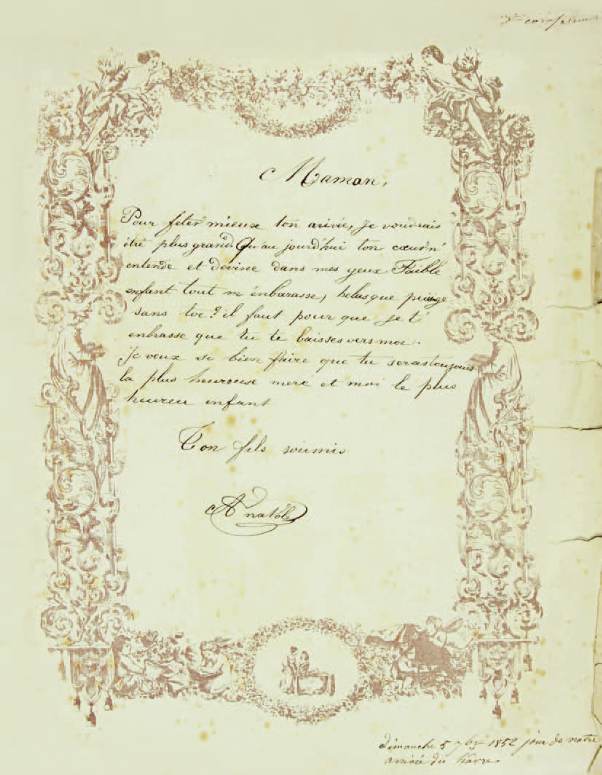 Maman,
Pour fêter mieux ton arivée, je voudrais
être plus grand Qu'au jourd'hui ton cœur m'
entende et devine dans mes yeux Faible
enfant tout m'enbarasse, helas que puis-je
sans toi? il faut pour que je t'
enbrasse que tu te baisses vers moi.
Je veux si bien faire que tu seras toujours
la plus heureuse mere et moi le plus
heureu enfant
Ton fils soumis
Anatole
dimanche 5 7bre 1852 jour de notre
arrivée du Havre.